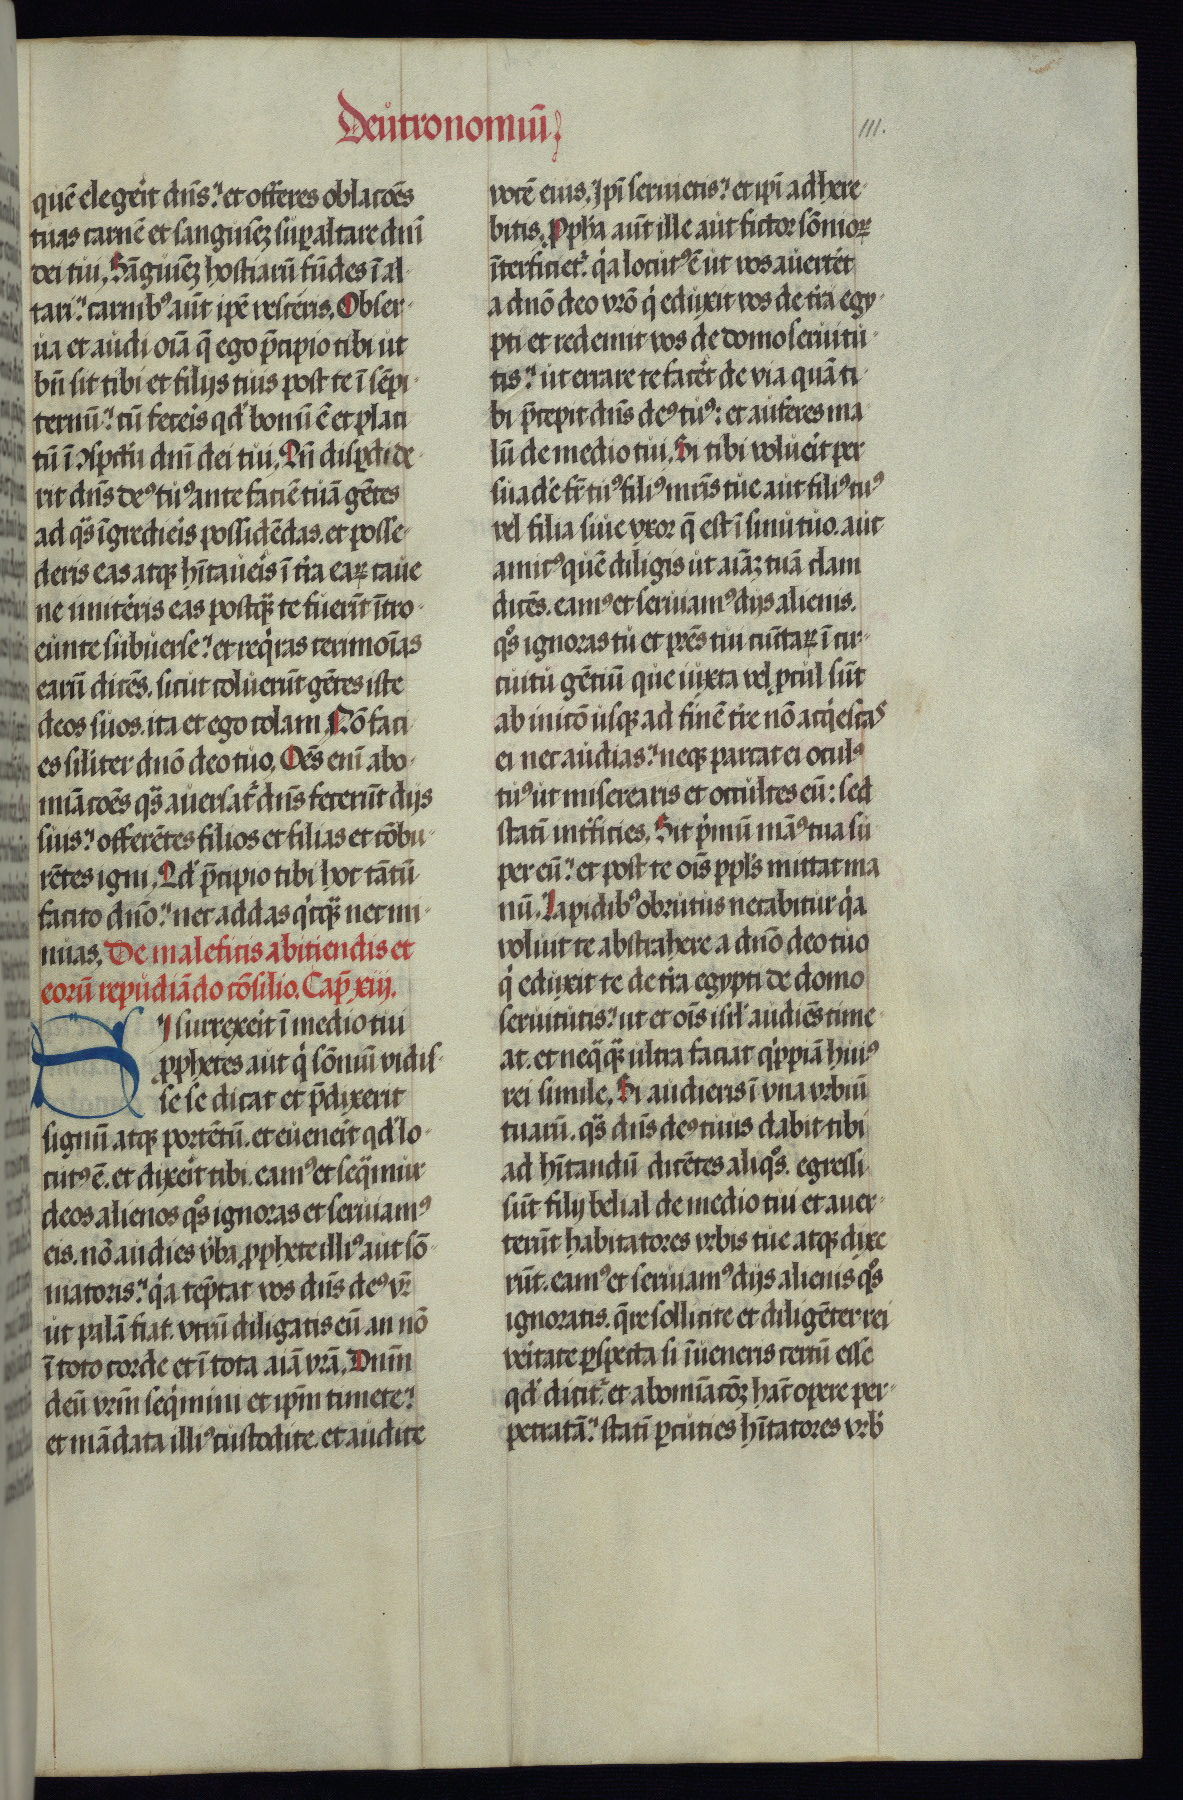 Deutronomiū
111.
quē elegerit dn̄s: et offeres oblacōes
tuas carnē et sanguinē sup altare dn̄i
dei tui. Sāguinē hostiarū fūdes ī al
tari: carnibꝰ aūt ipē vesceris. Obser-
ua et audi oīa q̄ ego p̄cipio tibi ut
bn̄ sit tibi et filijs tuis post te ī sēpi-
ternū: cū feceris qd' bonū ē et placi
tū ī ꝯspc̄tu dn̄i dei tui. Qn̄ disꝑdide-
rit dn̄s deꝰ tuꝰ ante faciē tuā gētes
ad qs̄ īgredieris possidēdas. et posse-
deris eas atqꝫ hītaueris ī tr̄a eaꝝ caue
ne imiteris eas postqꝫ te fuerīt ītro-
eunte subuerse: et reqiras cerimoīas
earū dicēs. sicut coluerūt gētes iste
deos suos. ita et ego colam. Nō faci
es siliter dn̄o deo tuo. Oēs enī abo-
miacōes qs̄ auersat̄ dn̄s fecerūt dijs
suis: offerētes filios et filias et cōbu-
rētes igni. Qd' p̄cipio tibi hoc tātū
facito dn̄o: nec addas qicqꝫ nec mi-
nuas. De maleficis abiciendis et
eorū repudiādo cōsilio. Cap̄ xiij.
SI surrexerit ī medio tui
ꝓphetes aut qi sōniū vidis-
se se dicat et p̄dixerit
signū atqꝫ portētū. et euenerit qd' lo-
cutꝰ ē. et dixerit tibi. eamꝰ et seq̄mur
deos alienos qos ignoras et seruiamꝰ
eis. nō audies v̄ba ꝓphete illiꝰ aut sō-
niatoris: qia tēptat vos dn̄s deꝰ vr̄
ut palā fiat. vtrū diligatis eū an nō
ī toto corde et ī tota aīa vrā. Dn̄m
deū vrm̄ seqimini et ip̄m timete:
et mādata illiꝰ custodite. et audite
vocē eius. Ip̄i seruietis: et ip̄i adhere-
bitis. Ppha aūt ille aut fictor sōnioꝝ
īterficiet̄. qia locutꝰ ē ut vos auerteret
a dn̄o deo vr̄o qi eduxit vos de tr̄a egy-
pti et redemit vos de domo seruitu-
tis: ut errare te faceret de via quā ti-
bi p̄cepit dn̄s deꝰ tuꝰ: et auferes ma
lū de medio tui. Si tibi voluerit per
suadē fr̄ tuꝰ filiꝰ mr̄is tue aut filiꝰ tuꝰ
vel filia siue vxor q̄ est ī sinu tuo. aut
amicꝰ quē diligis ut aīaꝫ tuā clam
dicēs. eamꝰ et seruiamꝰ dijs alienis.
qos ignoras tu et pr̄es tui cūctaꝝ ī cir-
cuitu gētiū que iuxta vel ꝓcul sūt
ab inicō usqꝫ ad finē tr̄e nō acqiescas
ei nec audias: neqꝫ parcat ei oculꝰ
tuꝰ ut miserearis et occultes eū: sed
statī int̄ficies. Sit p̄mū māꝰ tua su
per eū: et post te oīs ppl's mittat ma
nū. Lapidibꝰ obrutus necabitur qia
voluit te abstrahere a dn̄o deo tuo
qi eduxit te de tr̄a egypti de domo
seruitutis: ut et oīs isrl' audiēs time-
at. et neq̄qꝫ ultra faciat qippiā huiꝰ
rei simile. Si audieris ī vna vrbiū
tuarū. qs̄ dn̄s deꝰ tuus dabit tibi
ad hītandū dicētes aliqos. egressi
sūt filij belial de medio tui et auer-
terūt habitatores vrbis tue atqꝫ dixe
rūt. eamꝰ et seruiamꝰ dijs alienis qos
ignoratis. q̄re sollicite et diligēter rei
veritate ꝑspecta si īueneris certū esse
qd' dicit̄. et abomiacōꝫ hāc opere per-
petratā: statī ꝑcuties hītatores vrb